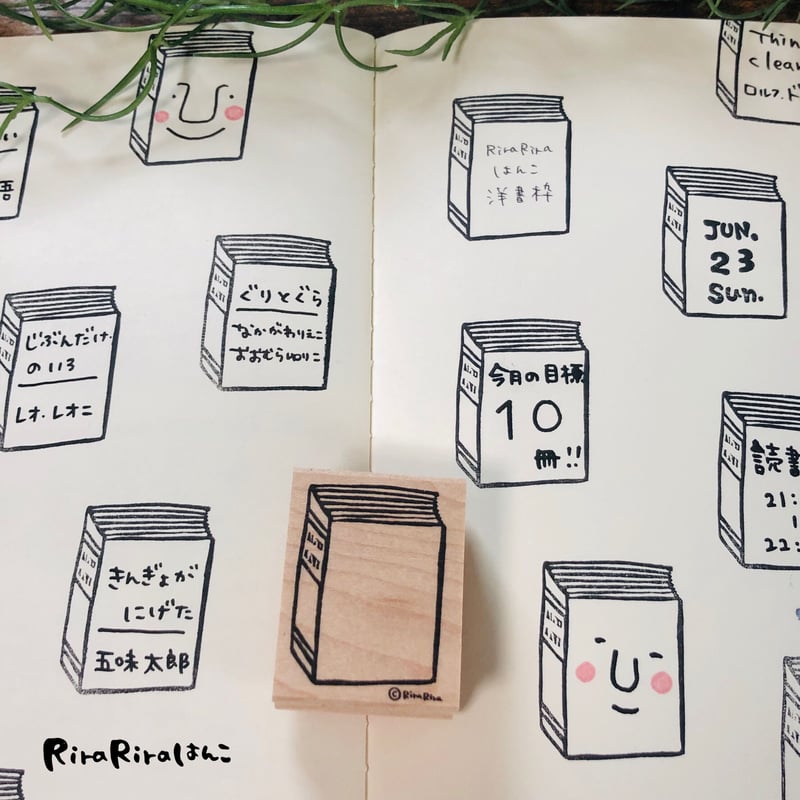 い
語
ぐりとぐら
なかがわりえこ
おおむらゆりこ
じぶんだけ
のいろ
レオ・レオニ
きんぎょが
にげた
五味太郎
Thin
clear
ロルフ・ド
RiraRira
はんこ
洋書枠
JUN.
23
Sun.
今月の目標
10
冊!!
読書
21:
1
22:
©RiraRira
RiraRiraはんこ